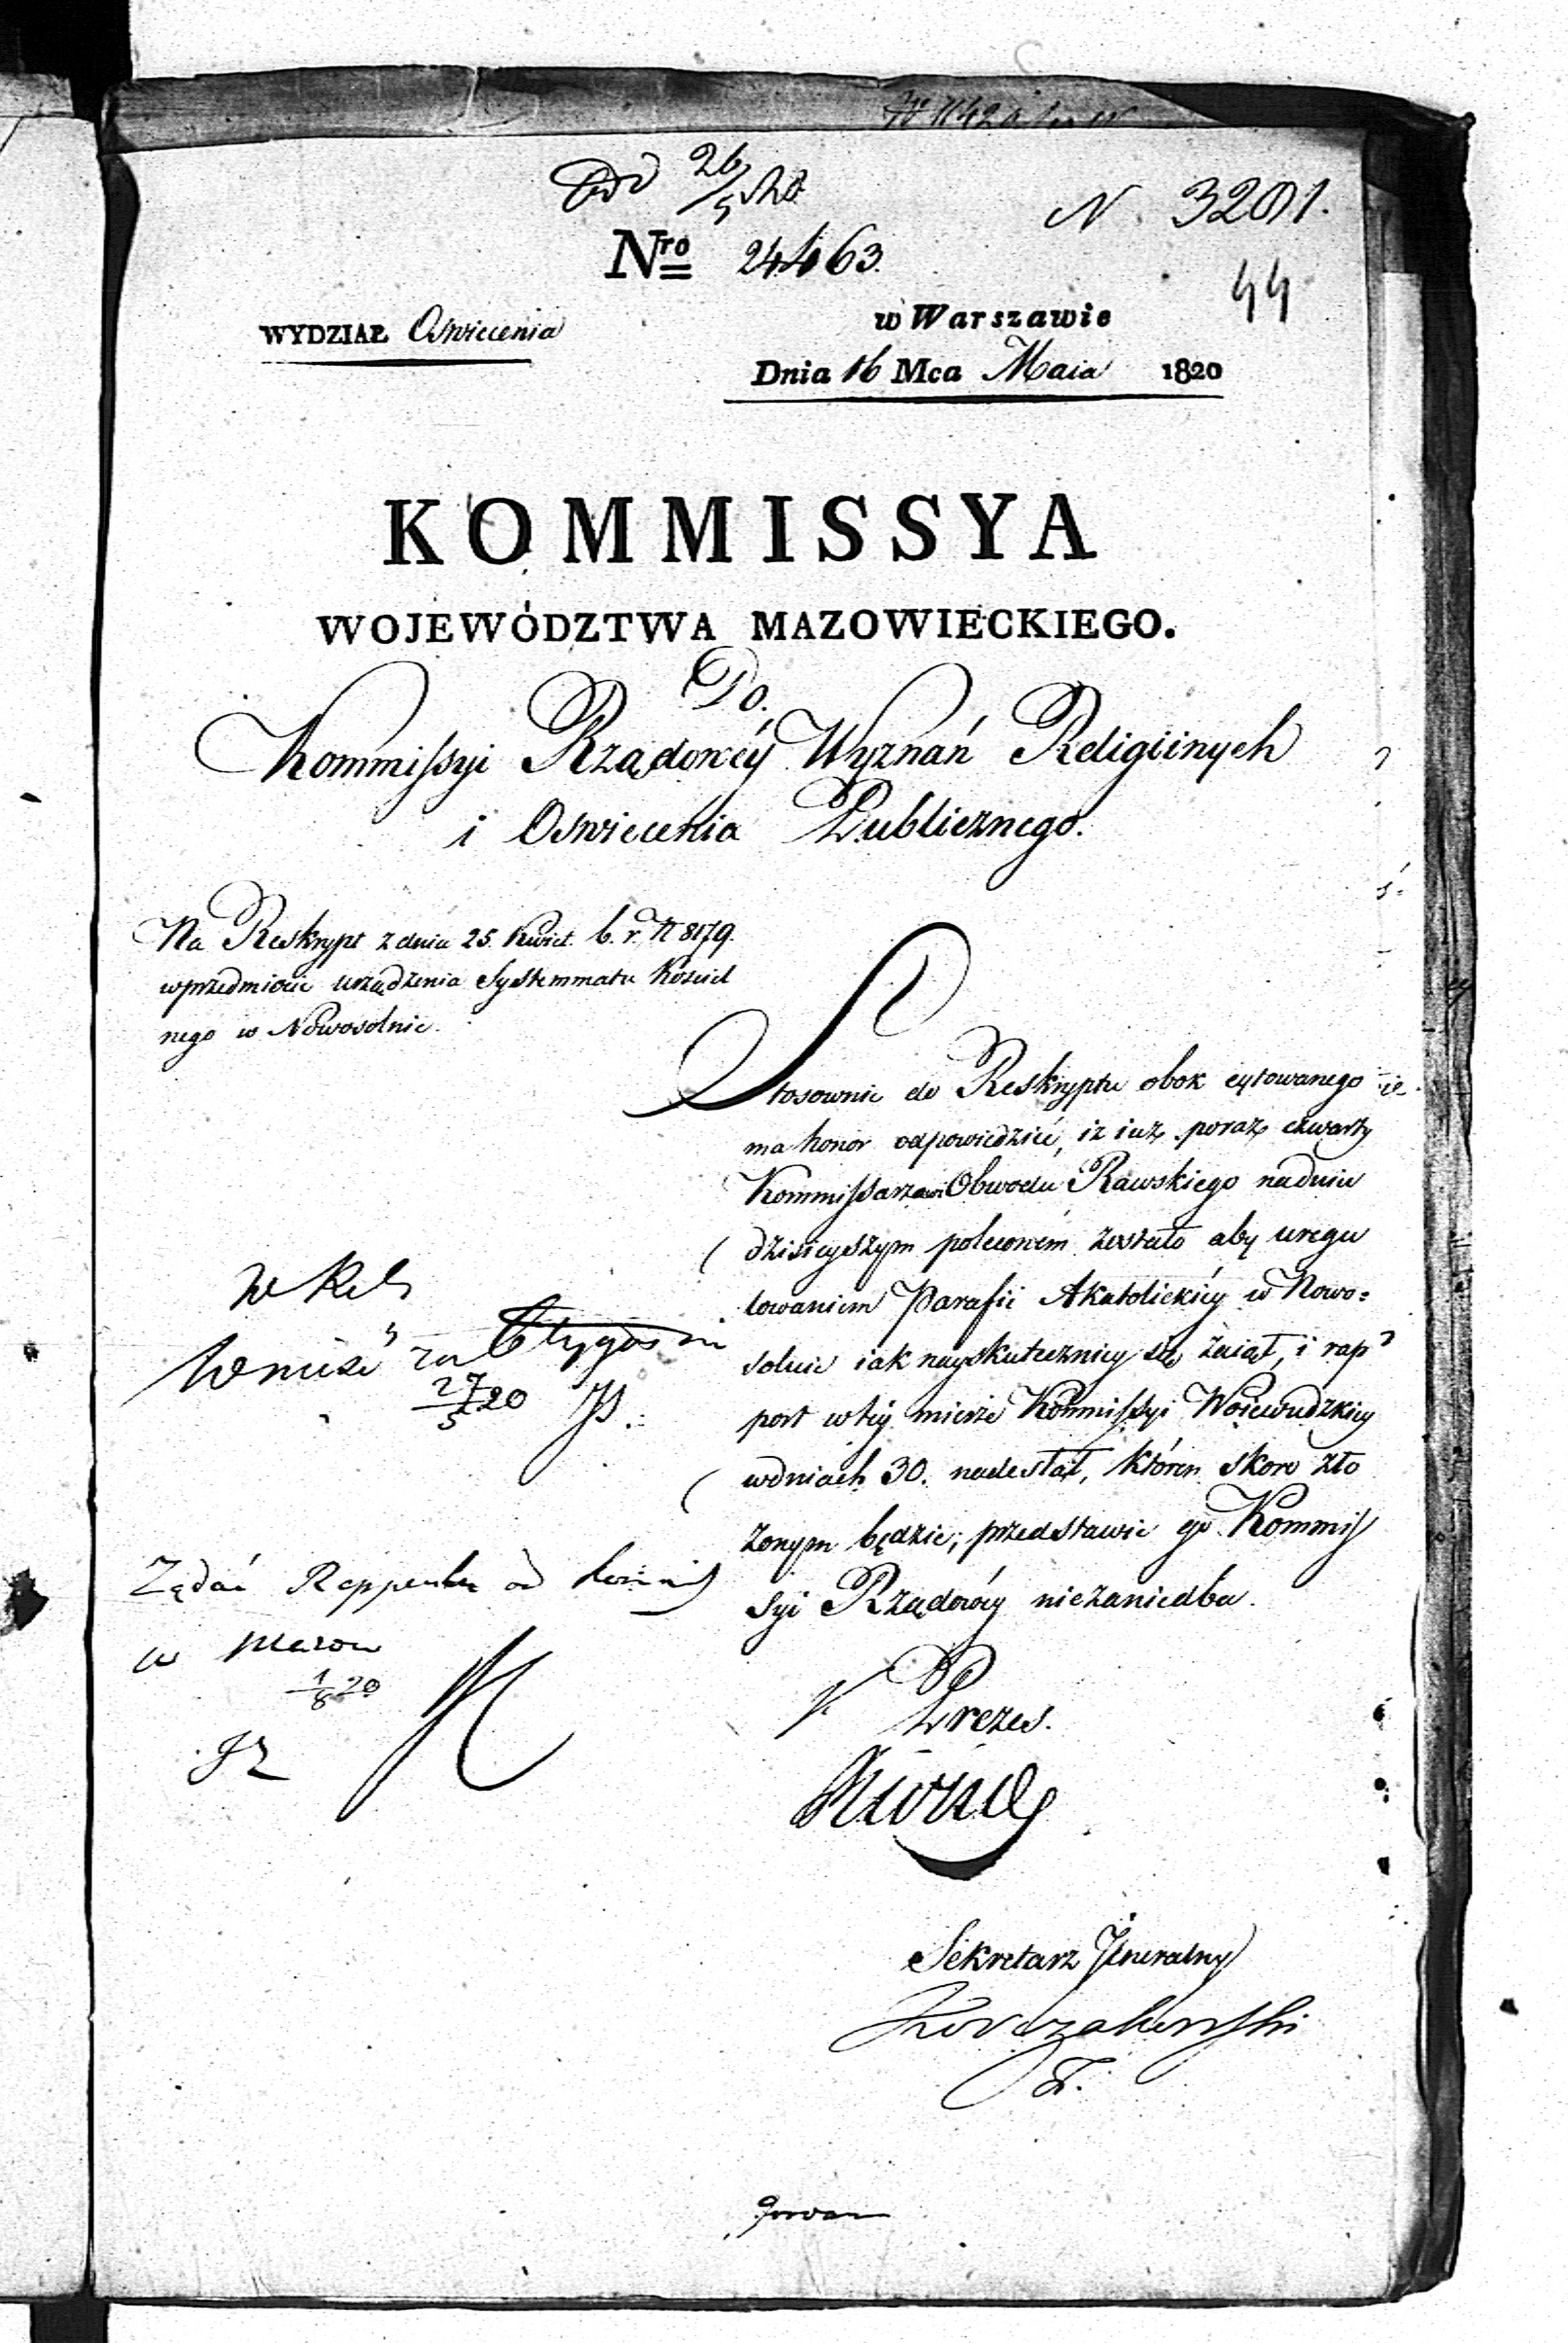 26/5 20
N 3201.
Nro 24463.
44
WYDZIAŁ Oswiecenia
w Warszawie
Dnia 16 Mca Maia 1820
KOMMISSYA
WOJEWÓDZTWA MAZOWIECKIEGO.
Do.
Kommissyi Rządowéy Wyznań Religiinych
i Oswiecenia Publicznego.
Na Reskrypt z dnia 25. Kwiet. b. r. N 8179.
wprzedmiocie urządzenia Systemmatu Kościel
nego w Nowosolnie.
Stosownie do Reskryptu obok cytowanego
ma honor odpowiedzieć, iz iuż poraz czwarty
Kommissarzowi Obwodu Rawskiego nadniu
dzisieyszym poleconem zostało aby uregu
lowaniem Parafii Akatolickiéy w Nowo=
solnie iak nayskuteczniey się zaiął, i rap
port wtéy mierze Kommissyi Woiewudzkiey
wdniach 30. nadesłał, któren skoro zło
zonym będzie, przedstawic go Kommis
syi Rządowéy niezaniedba.
Wnieść za 6 tygodni
27/5 20
Żądać od
w Mazow
1/8 20
Prezes.
Sekretarz Jeneralny